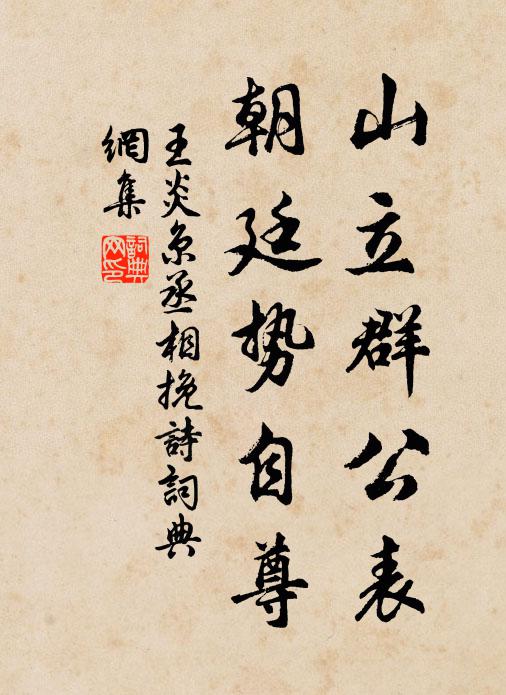 山立群公表
朝廷势自尊
王炎京丞相挽詩詞典
網集
詞典
网印